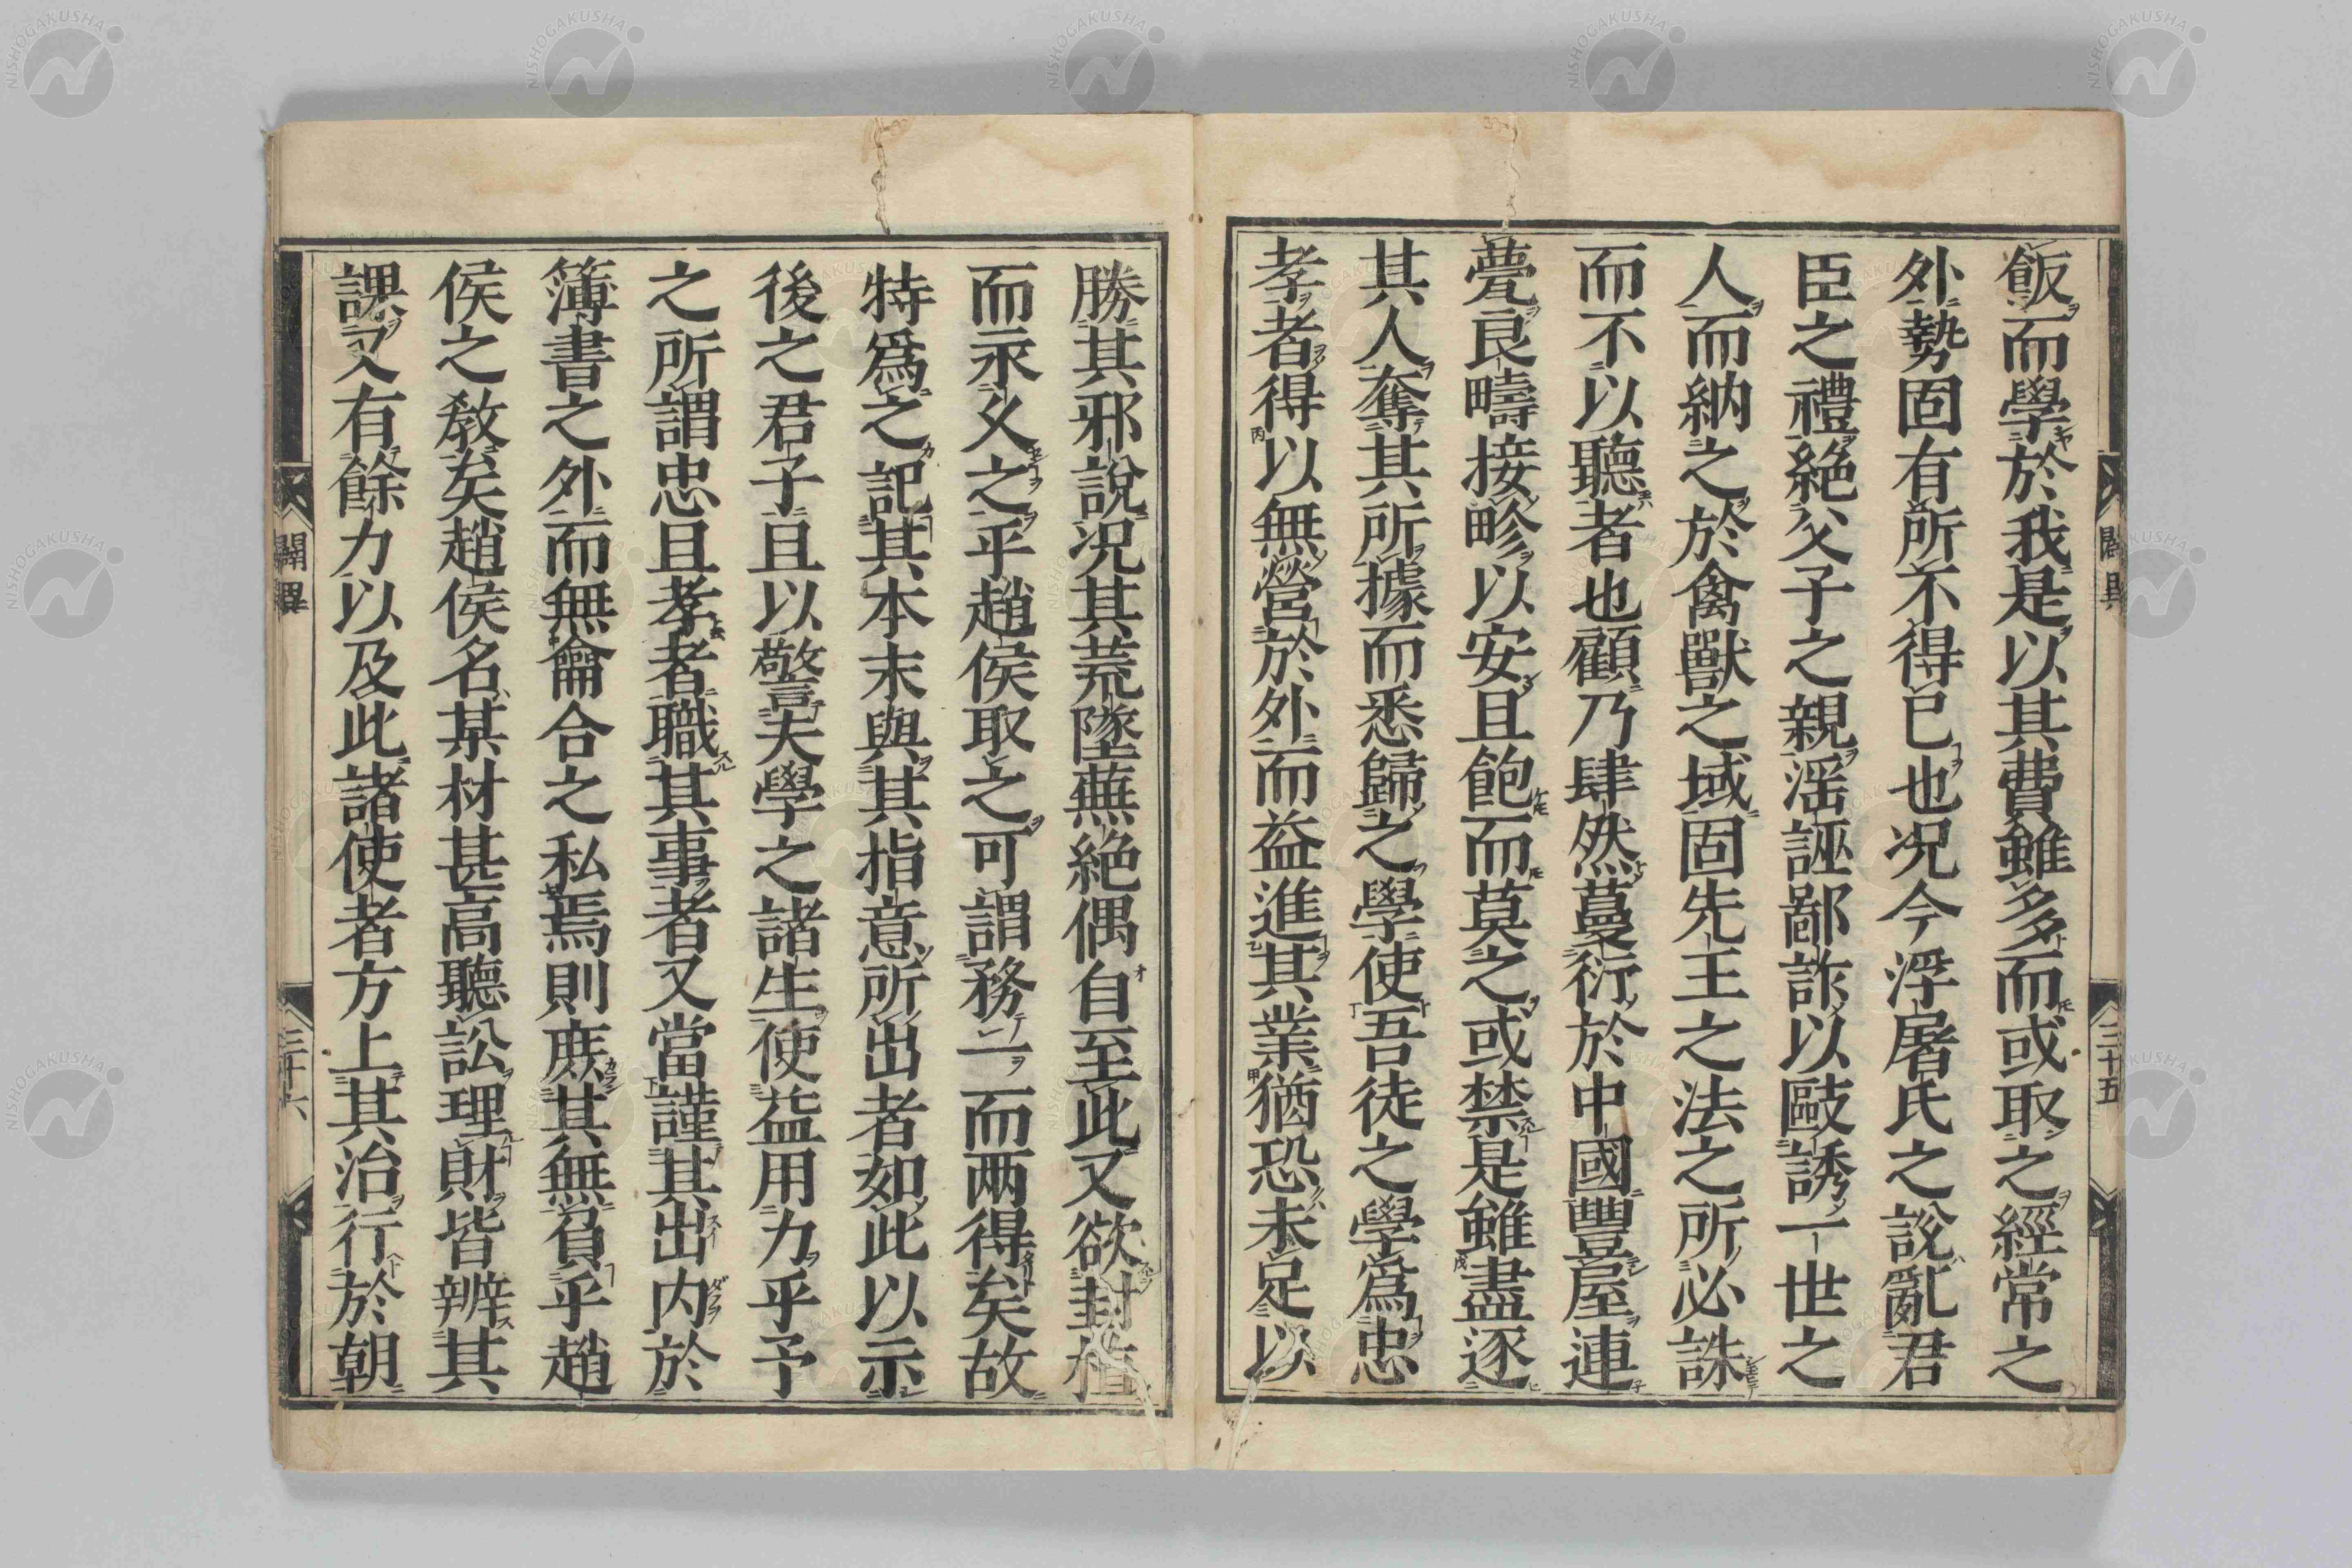 飯而學於我是以其費雖多而或取之經常之
外勢固有所不得已也况今浮屠氏之說亂君
臣之禮絶父子之親淫誣鄙詐以歐誘一世之
人而納之於禽獸之域固先王之法之所必誅
而不以聽者也顧乃肆然蔓衍於中國豐屋連
甍良疇接畛以安且飽而莫之或禁是雖盡逐
其人奪其所據而悉歸之學使吾徒之學爲忠
孝者得以無營於外而益進其業猶恐未足以
三十五
勝其邪說况其荒墜蕪絶偶自至此又欲封植
而永久之乎趙侯取之可謂務一而兩得矣故
特爲之記其本末與其指意所出者如此以示
後之君子且以警夫學之諸生使益用力乎予
之所謂忠且孝者職其事者又當謹其出内於
簿書之外而無龠合之私焉則庶其無負乎趙
侯之敎矣趙侯名某材甚高聽訟理財皆辨其
課又有餘力以及此諸使者方上其治行於朝
闢異
三十六
NISHOGAKUSHA